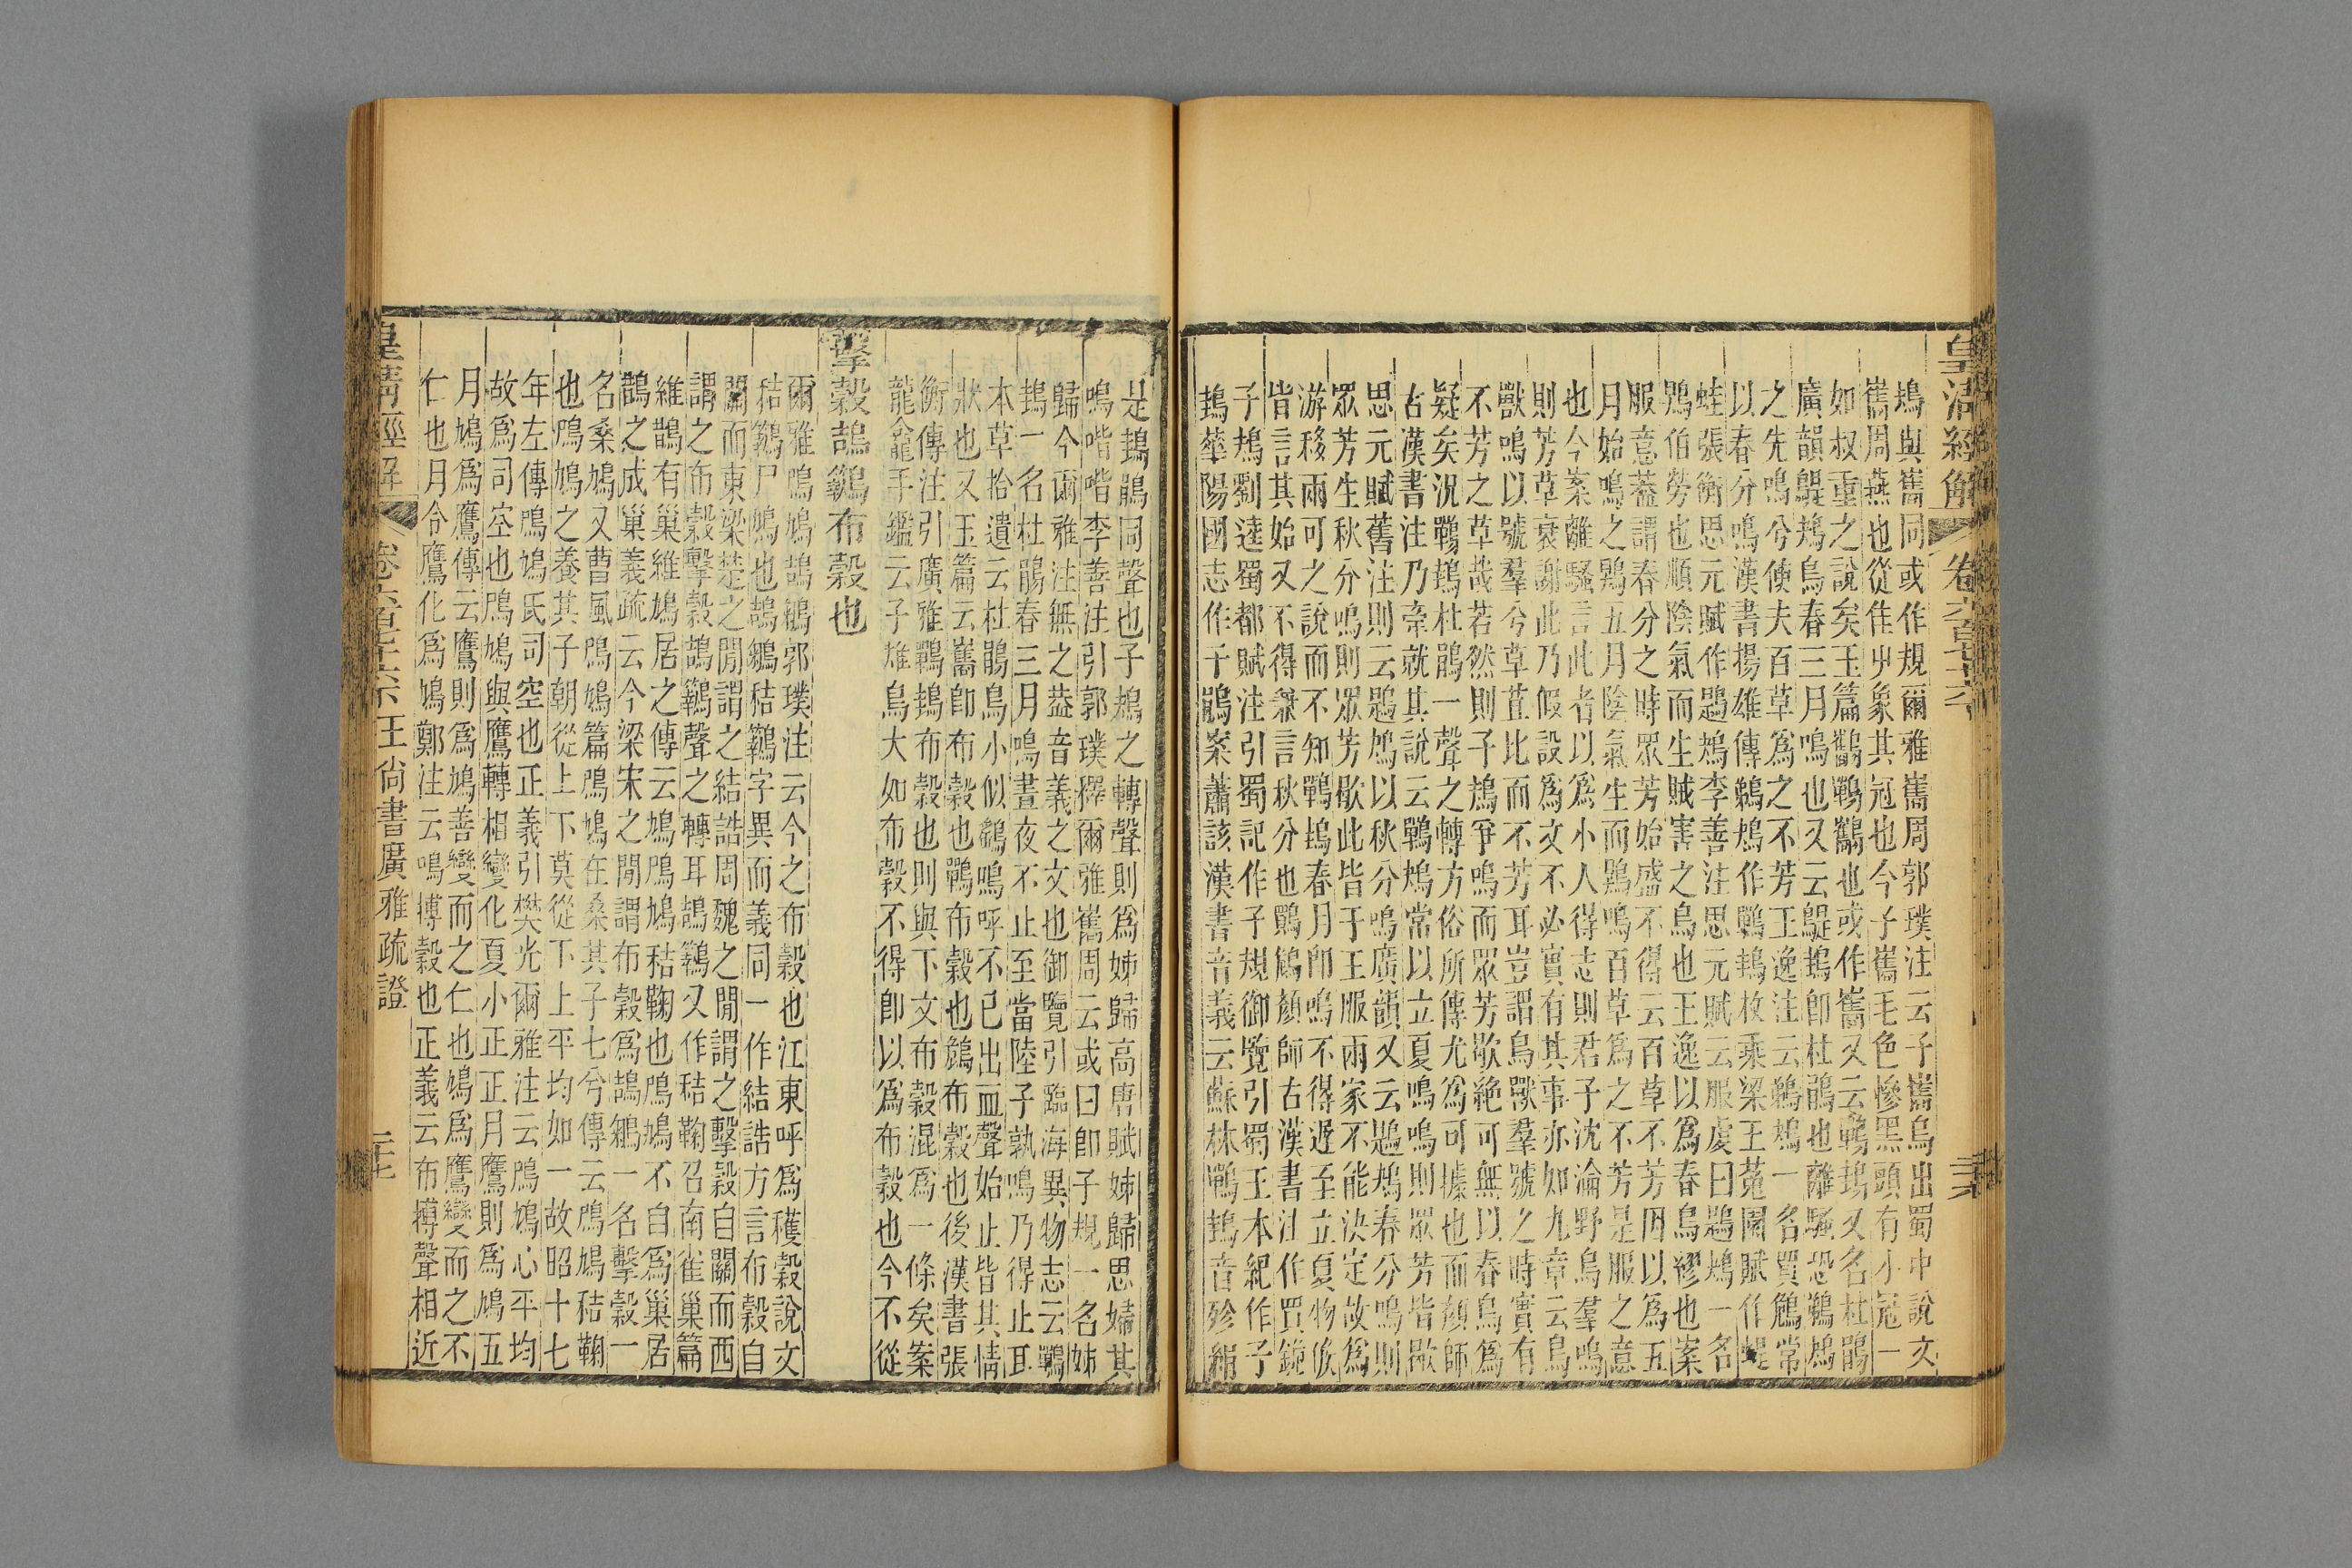 皇清經解
卷六百七十六
鴂與巂同或作規爾雅巂周郭璞注云子巂鳥出蜀中說文
巂周燕也從隹屮象其冠也今子巂毛色慘黑頭有小冠一
如叔重之說矣玉篇鸛鷤鷱也或作巂又云鷤鴂又名杜鵑
廣韻鶗鴂鳥春三月鳴也又云鶗鴂卽杜鵑也離騷恐鵜鴂
之先鳴兮使夫百草爲之不芳王逸注云鵜鴂一名買鵤常
以春分鳴漢書揚雄傳鵜鴂作鷤鴂枚乘梁王菟園賦作蝭
蛙張衡思元賦作鶗鴂李善注思元賦云服虔曰鶗鴂一名
鶪伯勞也順陰氣而生賊害之鳥也王逸以爲春鳥繆也案
服意葢謂春分之時眾芳始盛不得云百草不芳因以爲五
月始鳴之鶪五月陰氣生而鶪鳴百草爲之不芳是服之意
也今案離騷言此者以爲小人得志則君子沈淪野鳥羣鳴
則芳草衰謝此乃假設爲文不必實有其事亦如九章云鳥
獸鳴以號羣兮草苴比而不芳耳豈謂鳥獸羣號之時實有
不芳之草哉若然則子鴂爭鳴而眾芳歇絶可無以春鳥爲
疑矣況鷤鴂杜鵑一聲之轉方俗所傳尤爲可據也而顏師
古漢書注乃牽就其說云鷤鴂常以立夏鳴鳴則眾芳皆歇
思元賦舊注則云鶗鴂以秋分鳴廣韻又云鶗鴂春分鳴則
眾芳生秋分鳴則眾芳歇此皆于王服兩家不能決定故爲
游移兩可之說而不知鷤鴂春月卽鳴不得遲至立夏物候
皆言其始又不得兼言秋分也鷤鴂顏師古漢書注作買鉋
子鴂劉逵蜀都賦注引蜀記作子規御覽引蜀王本紀作子
鴂華陽國志作子鵑案蕭該漢書音義云蘇林鷤鴂音殄絹
是鴂鵑同聲也子鴂之轉聲則爲姊歸高唐賦姊歸思婦其
鳴喈喈李善注引郭璞釋爾雅巂周云或曰卽子規一名姊
歸今爾雅注無之葢音義之文也御覽引臨海異物志云鷤
鴂一名杜鵑春三月鳴晝夜不止至當陸子孰鳴乃得止耳
本草拾遺云杜鵑鳥小似鷂鳴呼不已出血聲始止皆其情
狀也又玉篇云巂卽布穀也鷤布穀也鴂布穀也後漢書張
衡傳注引廣雅鷤鴂布穀也則與下文布穀混爲一條矣案
龍龕手鑑云子雄鳥大如布穀不得卽以爲布穀也今不從
擊穀鴶鵴布穀也
爾雅鳲鳩鴶鵴郭璞注云今之布穀也江東呼爲穫穀說文
秸鵴尸鳩也鴶鵴秸鵴字異而義同一作結誥方言布穀自
關而東梁楚之閒謂之結誥周魏之閒謂之擊穀自關而西
謂之布穀擊穀鴶鵴聲之轉耳鴶鵴又作秸鞠召南雀巢篇
維鵲有巢維鳩居之傳云鳩鳲鳩秸鞠也鳲鳩不自爲巢居
鵲之成巢義疏云今梁宋之閒謂布穀爲鴶鵴一名擊穀一
名桑鳩又曹風鳲鳩篇鳲鳩在桑其子七兮傳云鳲鳩秸鞠
也鳲鳩之養其子朝從上下莫從下上平均如一故昭十七
年左傳鳲鳩氏司空也正義引樊光爾雅注云鳲鳩心平均
故爲司空也鳲鳩與鷹轉相變化夏小正正月鷹則爲鳩五
月鳩爲鷹傳云鷹則爲鳩善變而之仁也鳩爲鷹變而之不
仁也月令鷹化爲鳩鄭注云鳴搏穀也正義云布搏聲相近
皇清經解
卷六百七十六
王尙書廣雅疏證
三十七